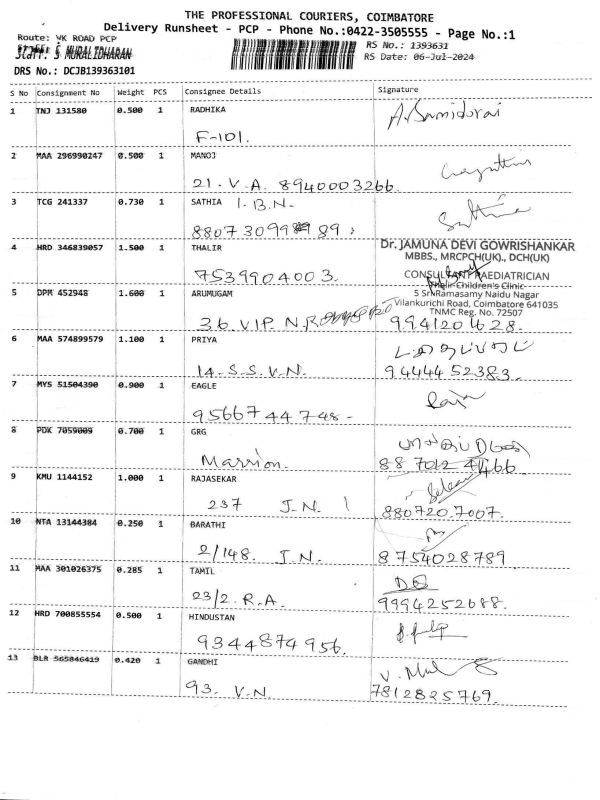 THE PROFESSIONAL COURIERS, COIMBATORE
Delivery Runsheet - PCP - Phone No.:0422-3505555 - Page No.:1
Route: VK ROAD PCP
RS No.: 1393631
Staff: S MURALIDHARAN
RS Date: 06-Jul-2024
DRS No.: DCJB139363101
S No Consignment No Weight PCS Consignee Details Signature
1 TNJ 131580 0.500 1 RADHIKA
F-101.
2 MAA 296990247 0.500 1 MANOJ
21. V.A. 8940003266.
3 TCG 241337 0.730 1 SATHIA I.B.N-
Sathia
4 HRD 346839057 1.500 1 THALIR
7539904003.
Dr. JAMUNA DEVI GOWRISHANKAR
MBBS., MRCPCH(UK)., DCH(UK)
CONSULTANT PAEDIATRICIAN
Thalir Children's Clinic
5 Sri Ramasamy Naidu Nagar
Vilankurichi Road, Coimbatore 641035
TNMC Reg. No. 72507
5 DPM 452948 1.600 1 ARUMUGAM
36. VIP. N.R
9941201628.
6 MAA 574899579 1.100 1 PRIYA
14. S.S.V.N.
9444452383.
7 MYS 51504390 0.900 1 EAGLE
9566744748-
8 PDK 7059009 0.700 1 GRG
Marrion.
9 KMU 1144152 1.000 1 RAJASEKAR
237 J.N.
8807207007.
10 NTA 13144384 0.250 1 BARATHI
2/148. J.N.
8754028789
11 MAA 301026375 0.285 1 TAMIL
23/2 R.A.
9994252688.
12 HRD 700855554 0.500 1 HINDUSTAN
9344874956.
13 BLR 565846419 0.420 1 GANDHI
93. V.N.
7812825769.